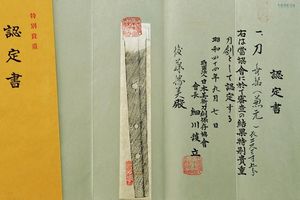 認定書
一、刀 無銘(兼元)
右は當協會に於て審査の結果特別貴重
刀剣として認定する
昭和四十年九月七日
財団法人日本美術刀剣保存協會
會長 細川護立
後藤
美殿
特別貴重
認定書